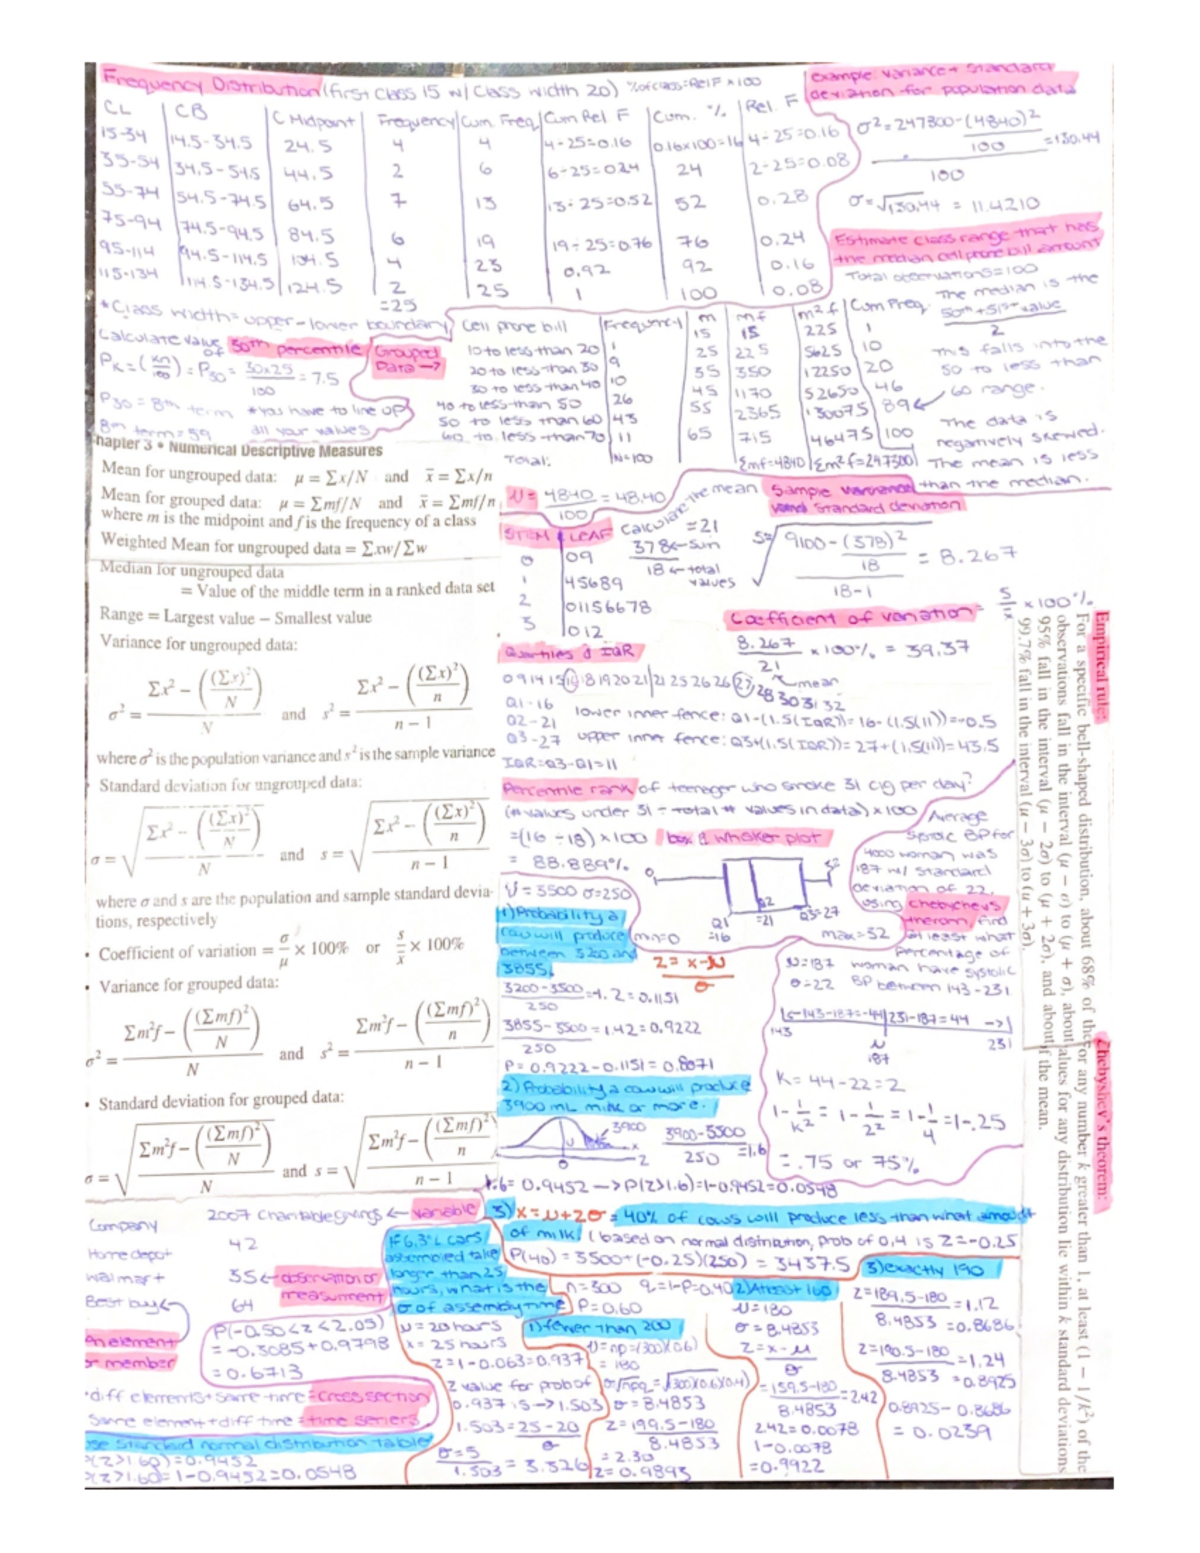 Frequency Distribution (first class 15 w/ class width 20) % of class = Rel F x 100
CL CB C Midpoint Frequency Cum Freq Cum Rel F Cum. % Rel. F
15-34 14.5-34.5 24.5 4 4 4÷25=0.16 0.16x100=16 4÷25=0.16
35-54 34.5-54.5 44.5 2 6 6÷25=0.24 24 2÷25=0.08
55-74 54.5-74.5 64.5 7 13 13÷25=0.52 52 0.28
75-94 74.5-94.5 84.5 6 19 19÷25=0.76 76 0.24
95-114 94.5-114.5 104.5 4 23 0.92 92 0.16
115-134 114.5-134.5 124.5 2 25 1 100 0.08
=25
*Class width = upper - lower boundary
example variance + standard
deviation for population data
σ²=247300-(4840)²
100 =130.44
100
σ=√130.44 = 11.4210
Estimate class range that has
the median cell phone bill amount
Total observations=100
The median is the
50th + 51st value
2
This falls into the
50 to less than
60 range.
The data is
negatively skewed.
The mean is less
than the median.
Calculate value
of 30th percentile
Pk=(kn/100) = P30 = 30x25/100 = 7.5
P30 = 8th term *you have to line up
8th term = 59 all your values
Grouped
Data →
Cell phone bill Frequency m mf m²f Cum Freq.
10 to less than 20 1 15 15 225 1
20 to less than 30 9 25 225 5625 10
30 to less than 40 10 35 350 12250 20
40 to less than 50 26 45 1170 52650 46
50 to less than 60 43 55 2365 130075 89
60 to less than 70 11 65 715 46475 100
Total: N=100 Σmf=4840 Σm²f=247300
μ = 4840/100 = 48.40
hapter 3 • Numerical Descriptive Measures
Mean for ungrouped data: μ = Σx/N and x̄ = Σx/n
Mean for grouped data: μ = Σmf/N and x̄ = Σmf/n
where m is the midpoint and f is the frequency of a class
Weighted Mean for ungrouped data = Σxw/Σw
Median for ungrouped data
= Value of the middle term in a ranked data set
Range = Largest value − Smallest value
Variance for ungrouped data:
σ² = (Σx² − ((Σx)²/N))/N and s² = (Σx² − ((Σx)²/n))/(n − 1)
where σ² is the population variance and s² is the sample variance
Standard deviation for ungrouped data:
σ = √((Σx² − ((Σx)²/N))/N) and s = √((Σx² − ((Σx)²/n))/(n − 1))
where σ and s are the population and sample standard devia-
tions, respectively
• Coefficient of variation = σ/μ × 100% or s/x̄ × 100%
• Variance for grouped data:
σ² = (Σm²f − ((Σmf)²/N))/N and s² = (Σm²f − ((Σmf)²/n))/(n − 1)
• Standard deviation for grouped data:
σ = √((Σm²f − ((Σmf)²/N))/N) and s = √((Σm²f − ((Σmf)²/n))/(n − 1))
STEM LEAF
0 09
1 45689
2 01156678
3 012
Calculate the mean
=21
378 ← sum
18 ← total
values
Sample variance
and standard deviation
s= √ 9100-(378)²
18 = 8.267
18-1
Coefficient of variation = s/x̄ x100%
8.267
21 x100% = 39.37
mean
Quartiles & IQR
0 9 14 15 16 18 19 20 21|21 25 26 26 27 28 30 31 32
Q1-16
Q2-21
Q3-27
IQR=Q3-Q1=11
lower inner fence: Q1-(1.5(IQR))=16-(1.5(11))=-0.5
upper inner fence: Q3+(1.5(IQR))=27+(1.5(11))=43.5
Percentile rank of teenager who smoke 31 cig per day?
(# values under 31 ÷ total # values in data) x100
=(16÷18) x100
= 88.889%
box & whisker plot
0
32
Q1 =16
Q2 =21
Q3=27
min=0
max=32
Average
systolic BP for
4000 woman was
187 w/ standard
deviation of 22.
Using Chebychevs
theorom, find
at least what
percentage of
woman have systolic
BP between 143-231
μ=187
σ=22
←143-187=-44|231-187=44→
143 μ 231
187
K= 44÷22=2
1-1/k² = 1-1/2² = 1-1/4 = 1-.25
= .75 or 75%
μ=3500 σ=250
1) Probability a
cow will produce
between 3200 and
3855.
z = x-μ
σ
3200-3500
250 =-1.2=0.1151
3855-3500
250 =1.42=0.9222
P=0.9222-0.1151=0.8071
2) Probability a cow will produce
3900 mL milk or more.
3900
3900-3500
250 =1.6
1.6= 0.9452 → P(z>1.6)=1-0.9452=0.0548
3) x=μ+zσ = 40% of cows will produce less than what amount
of milk? (based on normal distribution, prob of 0.4 is z=-0.25
P(40) = 3500+(-0.25)(250) = 3437.5
Company 2007 charitable givings ← variable
Home depot 42
Walmart 35 ← observation or
measurement
Best buy 64
An element
or member
P(-0.50<z<2.05)
= -0.3085+0.9798
= 0.6713
*diff elements + same time = cross section
same element + diff time = time seriers
use standard normal distribution table
P(z>1.60)=0.9452
P(z>1.60=1-0.9452=0.0548
If 6.3% cars
assembled take
longer than 25
hours, what is the
σ of assembly time
μ=20 hours
x=25 hours
z=1-0.063=0.937
z value for prob of
0.937 is → 1.503
1.503=25-20
σ
σ=5
1.503 = 3.326
n=300 q=1-P=0.40
P=0.60
1) fewer than 200
μ=np=(300)(0.6)
= 180
σ=√npq=√(300)(0.6)(0.4)
σ=8.4853
z=199.5-180
8.4853
=2.30
z=0.9893
2) Atleast 160
μ=180
σ=8.4853
z=x-μ
σ
=159.5-180
8.4853 =2.42
2.42=0.0078
1-0.0078
=0.9922
3) exactly 190
z=189.5-180
8.4853 =1.12
=0.8686
z=190.5-180
8.4853 =1.24
=0.8925
0.8925-0.8686
= 0.0239
Empirical rule:
For a specific bell-shaped distribution, about 68% of the
observations fall in the interval (μ − σ) to (μ + σ), about
95% fall in the interval (μ − 2σ) to (μ + 2σ), and about
99.7% fall in the interval (μ − 3σ) to (μ + 3σ).
Chebyshev's theorem:
For any number k greater than 1, at least (1 − 1/k²) of the
values for any distribution lie within k standard deviations
of the mean.